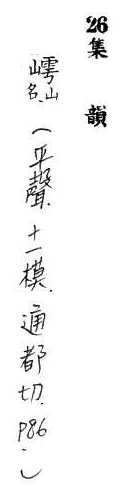 26集韻
嶀山名.(平聲.十一模.通都切.P86.)